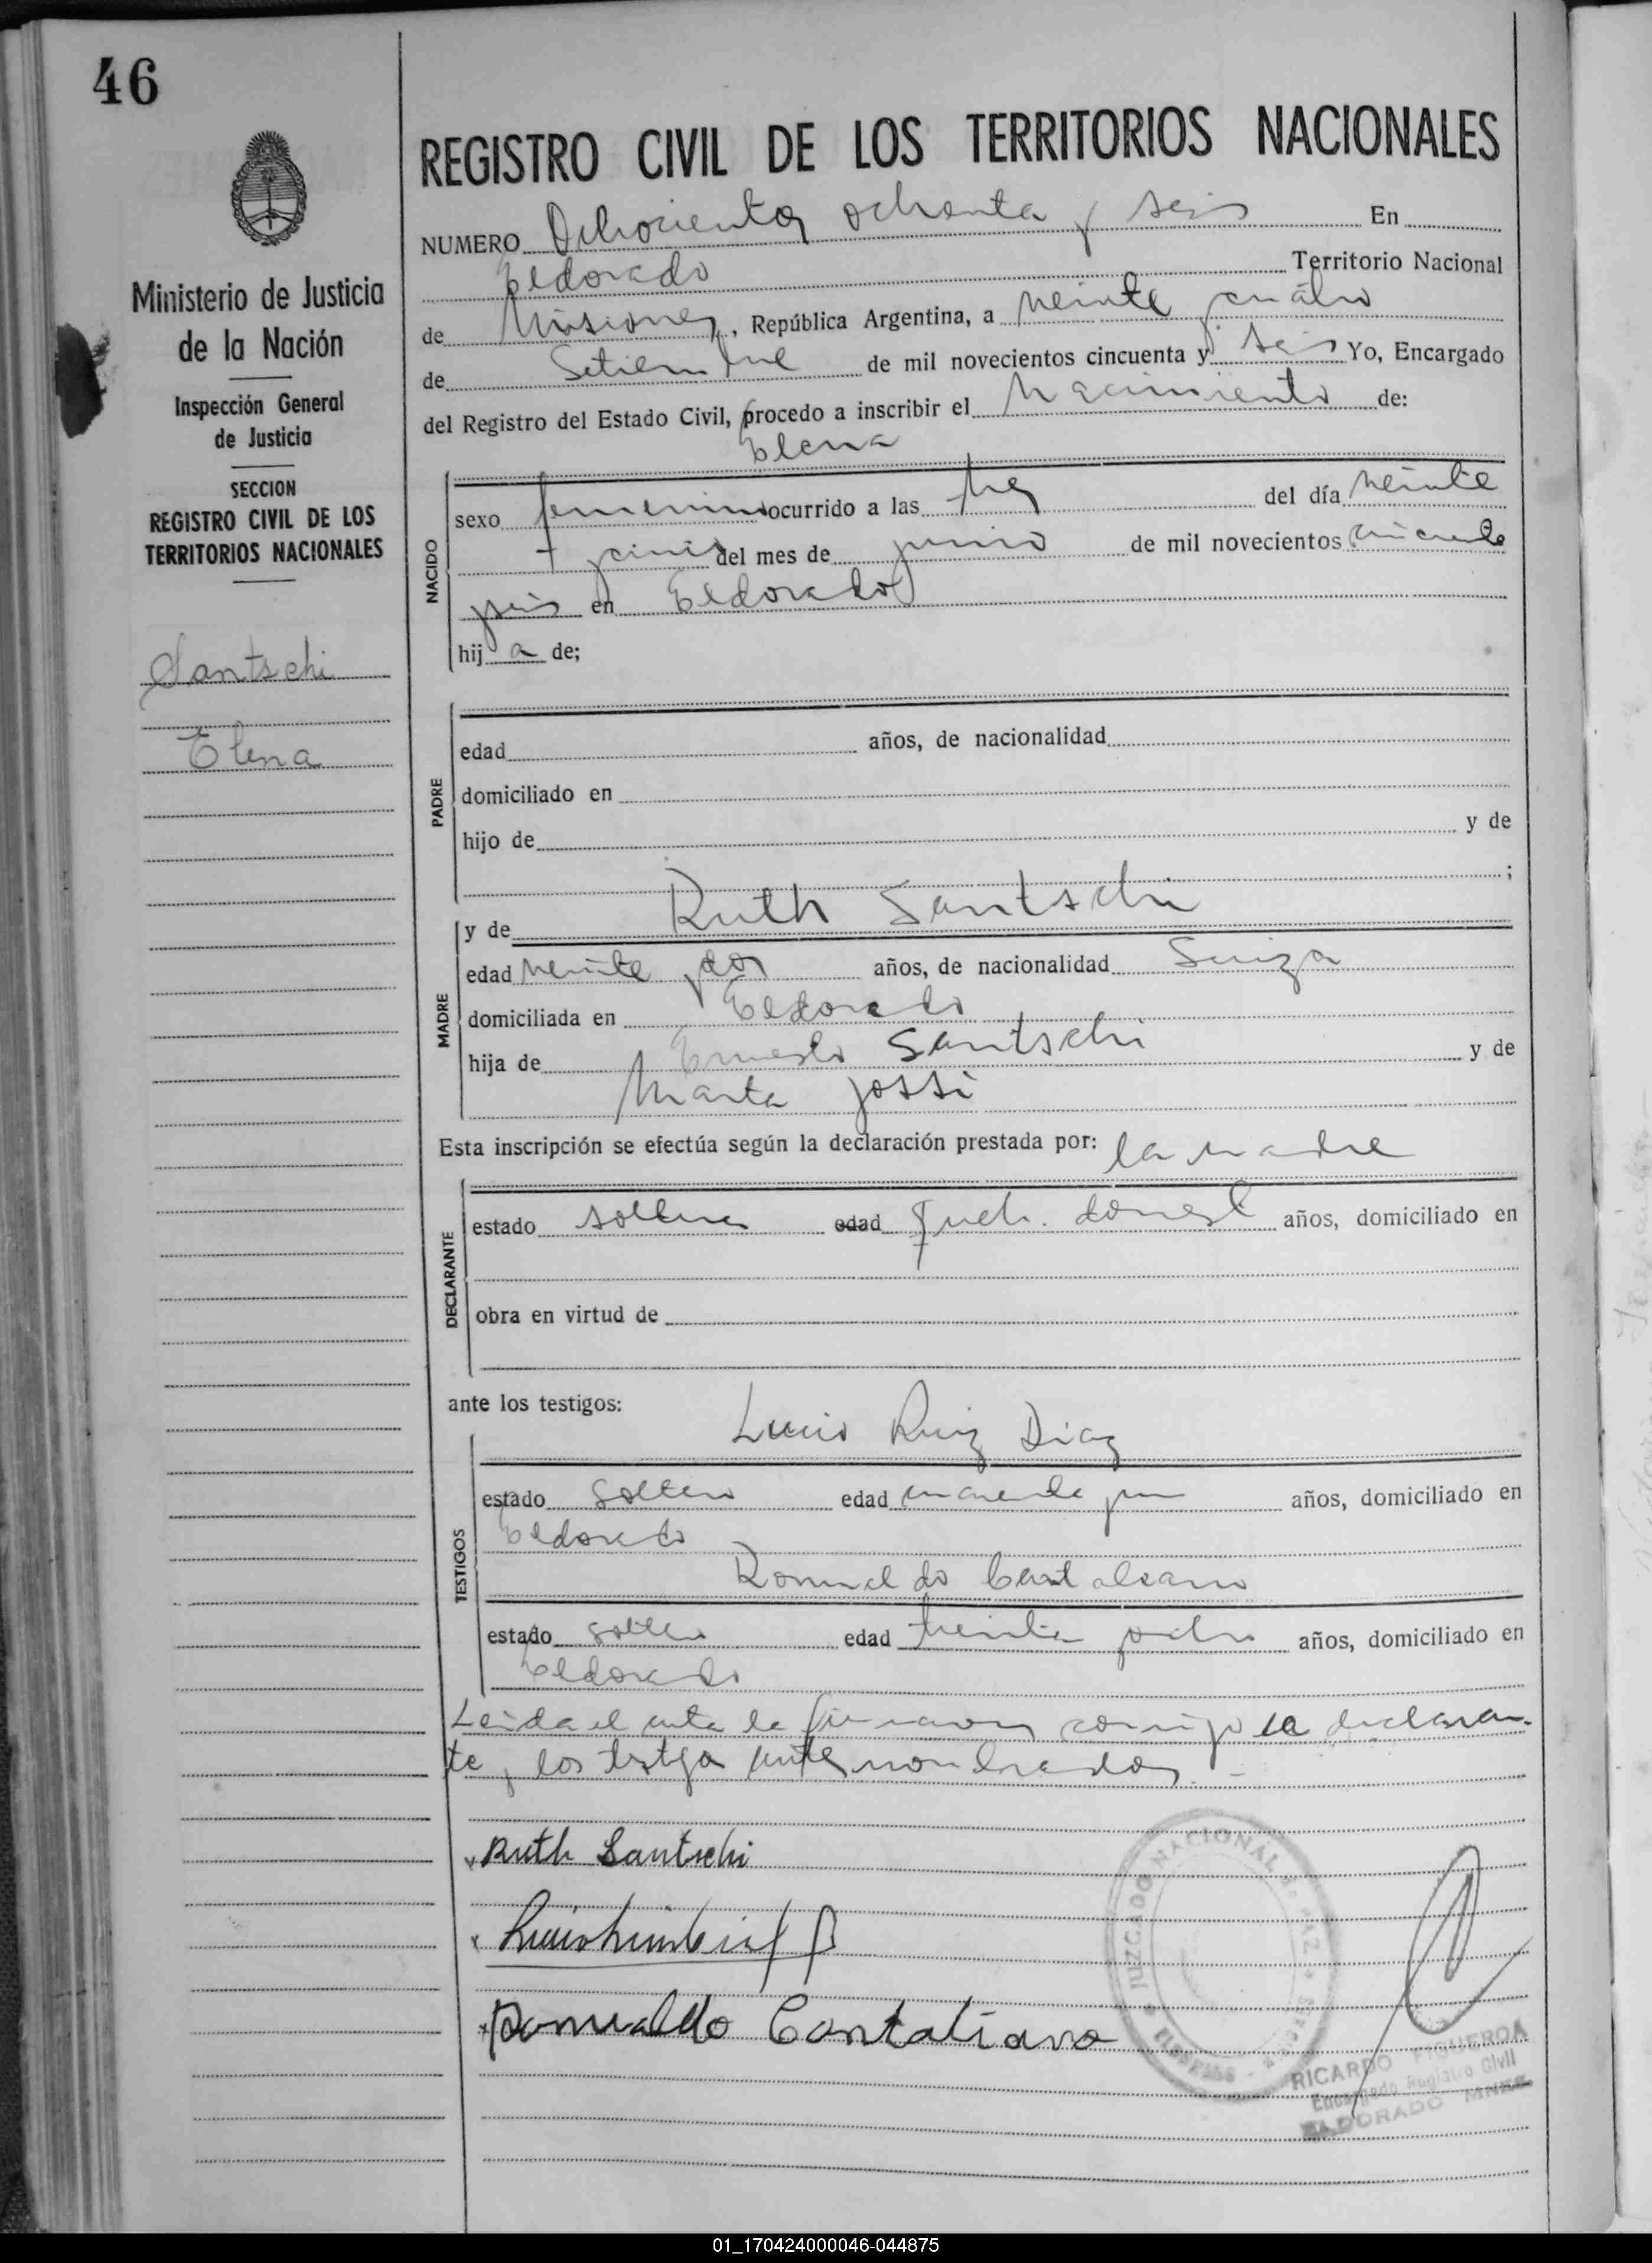 46
Ministerio de Justicia
de la Nación
Inspección General
de Justicia
SECCION
REGISTRO CIVIL DE LOS
TERRITORIOS NACIONALES
Santschi
Elena
REGISTRO CIVIL DE LOS TERRITORIOS NACIONALES
NUMERO Ochocientos ochenta y seis En
Eldorado Territorio Nacional
de Misiones, República Argentina, a veinte y cuatro
de Setiembre de mil novecientos cincuenta y seis Yo, Encargado
del Registro del Estado Civil, procedo a inscribir el Nacimiento de:
Elena
NACIDO
sexo femenino ocurrido a las tres del día veinte
y cinco del mes de junio de mil novecientos cincuenta
y seis en Eldorado
hija de;
PADRE
edad años, de nacionalidad
domiciliado en
hijo de y de
;
MADRE
y de Ruth Santschi
edad veinte y dos años, de nacionalidad Suiza
domiciliada en Eldorado
hija de Ernesto Santschi y de
Marta Jossi
Esta inscripción se efectúa según la declaración prestada por: la madre
DECLARANTE
estado soltera edad Queh. domest años, domiciliado en
obra en virtud de
ante los testigos:
TESTIGOS
Lucio Ruiz Diaz
estado soltero edad cincuenta y un años, domiciliado en
Eldorado
Romualdo
estado soltero edad treinta y ocho años, domiciliado en
Eldorado
Leida el acta la firmaron conmigo la declaran-
te y los testigos antes nombrados. -
Ruth Santschi
Romualdo Cantaliano
JUZGADO NACIONAL DE PAZ
MISIONES
RICARDO FIGUEROA
Encargado Registro Civil
ELDORADO MNES.
01_170424000046-044875